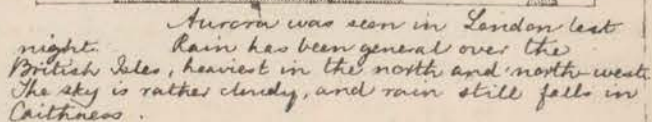 Aurora was seen in London last
night. Rain has been general over the
British Isles, heaviest in the north and north-west.
The sky is rather cloudy, and rain still falls in
Caithness.